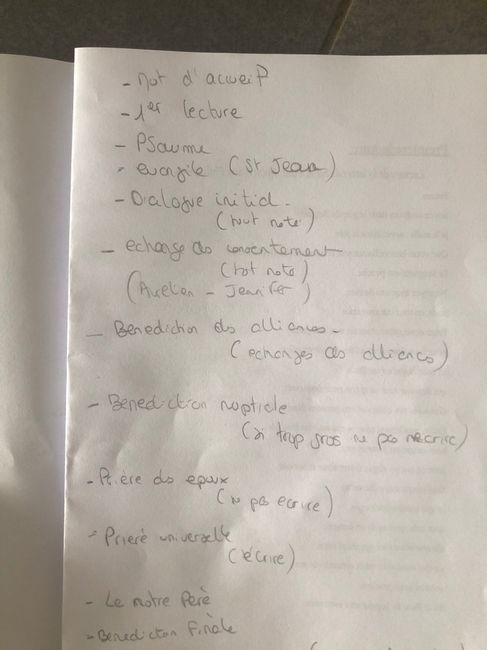 - Mot d'accueil
- 1er lecture
- Psaume
- evangile (St Jean)
- Dialogue initial.
(tout note)
- echange des consentement
(tot note)
(Aurelien - Jennifer)
- Benediction des alliances -
(echanges des alliances)
- Benediction nuptiale
(si trop gros ne pas necrire)
- Prière des epoux
(ne pas ecrire)
- Prierè universelle
(écrire)
- Le notre Perè
- Benediction Finale